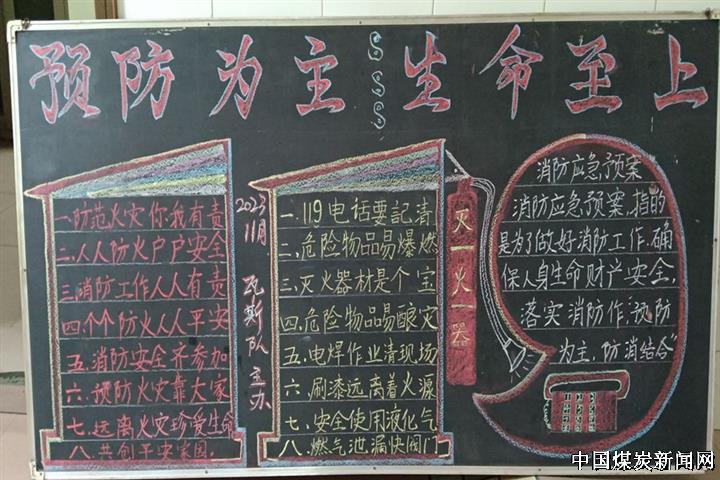 预防为主 生命至上
一.防范火灾你我有责
二.人人防火户户安全
三.消防工作人人有责
四.个个防火人人平安
五.消防安全齐参加
六.预防火灾靠大家
七.远离火灾珍爱生命
八.共创平安家园.
2023
11月
瓦斯队主办
一.119电话要記清
二.危险物品易爆燃
三.灭火器材是个宝
四.危险物品易酿灾
五.电焊作业清现场
六.刷漆远离着火源
七.安全使用液化气
八.燃气泄漏快阀门
灭火器
消防应急预案
消防应急预案,指的
是为了做好消防工作.确
保人身生命财产安全,
落实消防作"预防
为主,防消结合"
中国煤炭新闻网